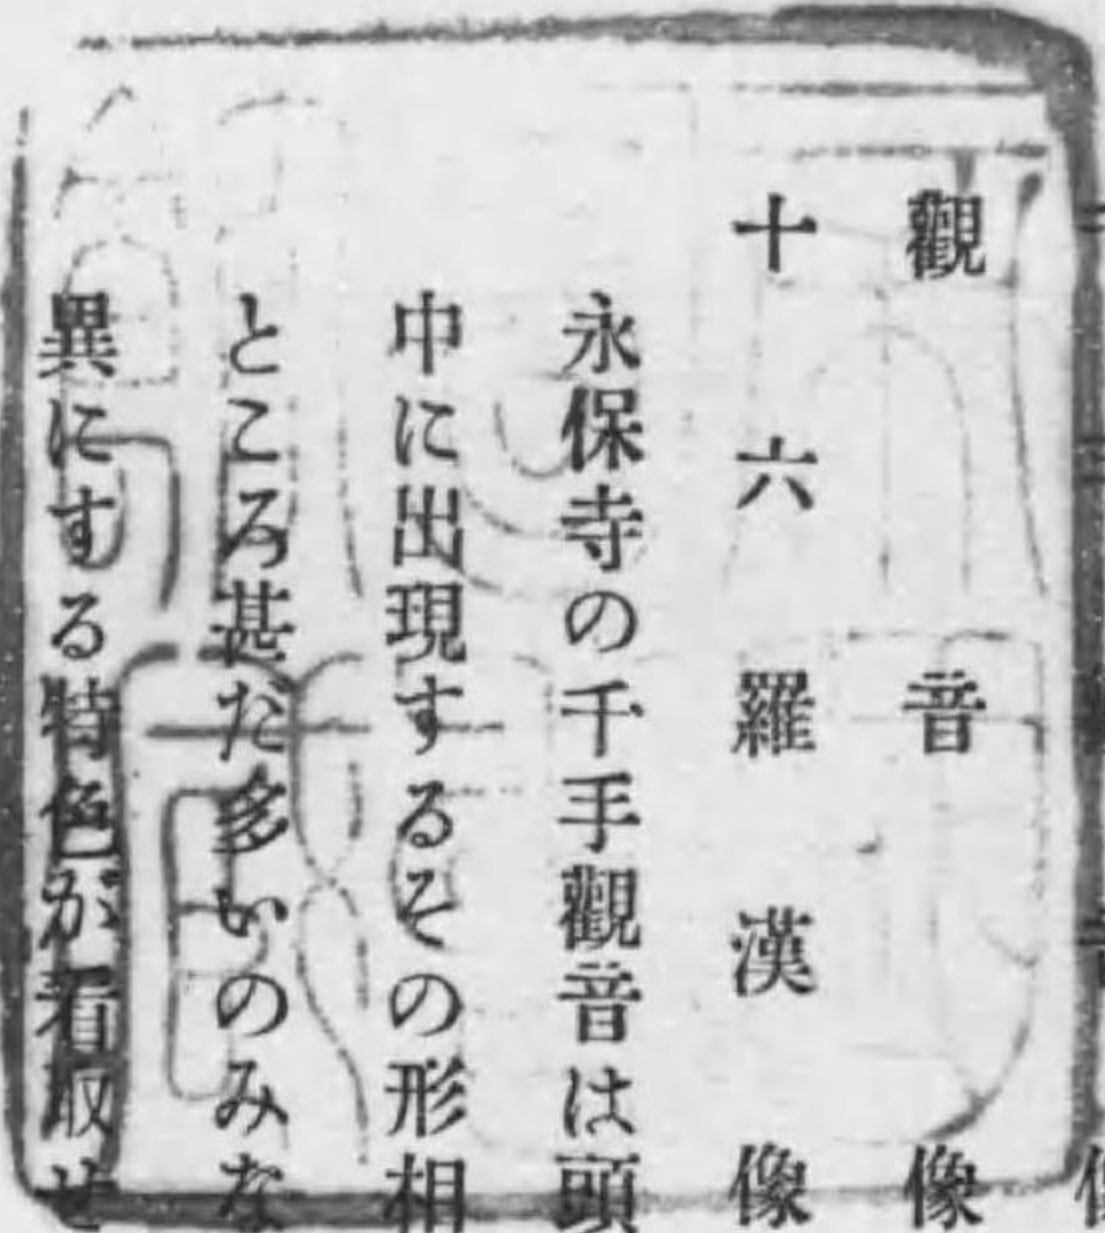 觀音像
十六羅漢像
永保寺の千手觀音は頭
中に出現するその形相
ところ甚だ多いのみな
異にする特色が看取せ